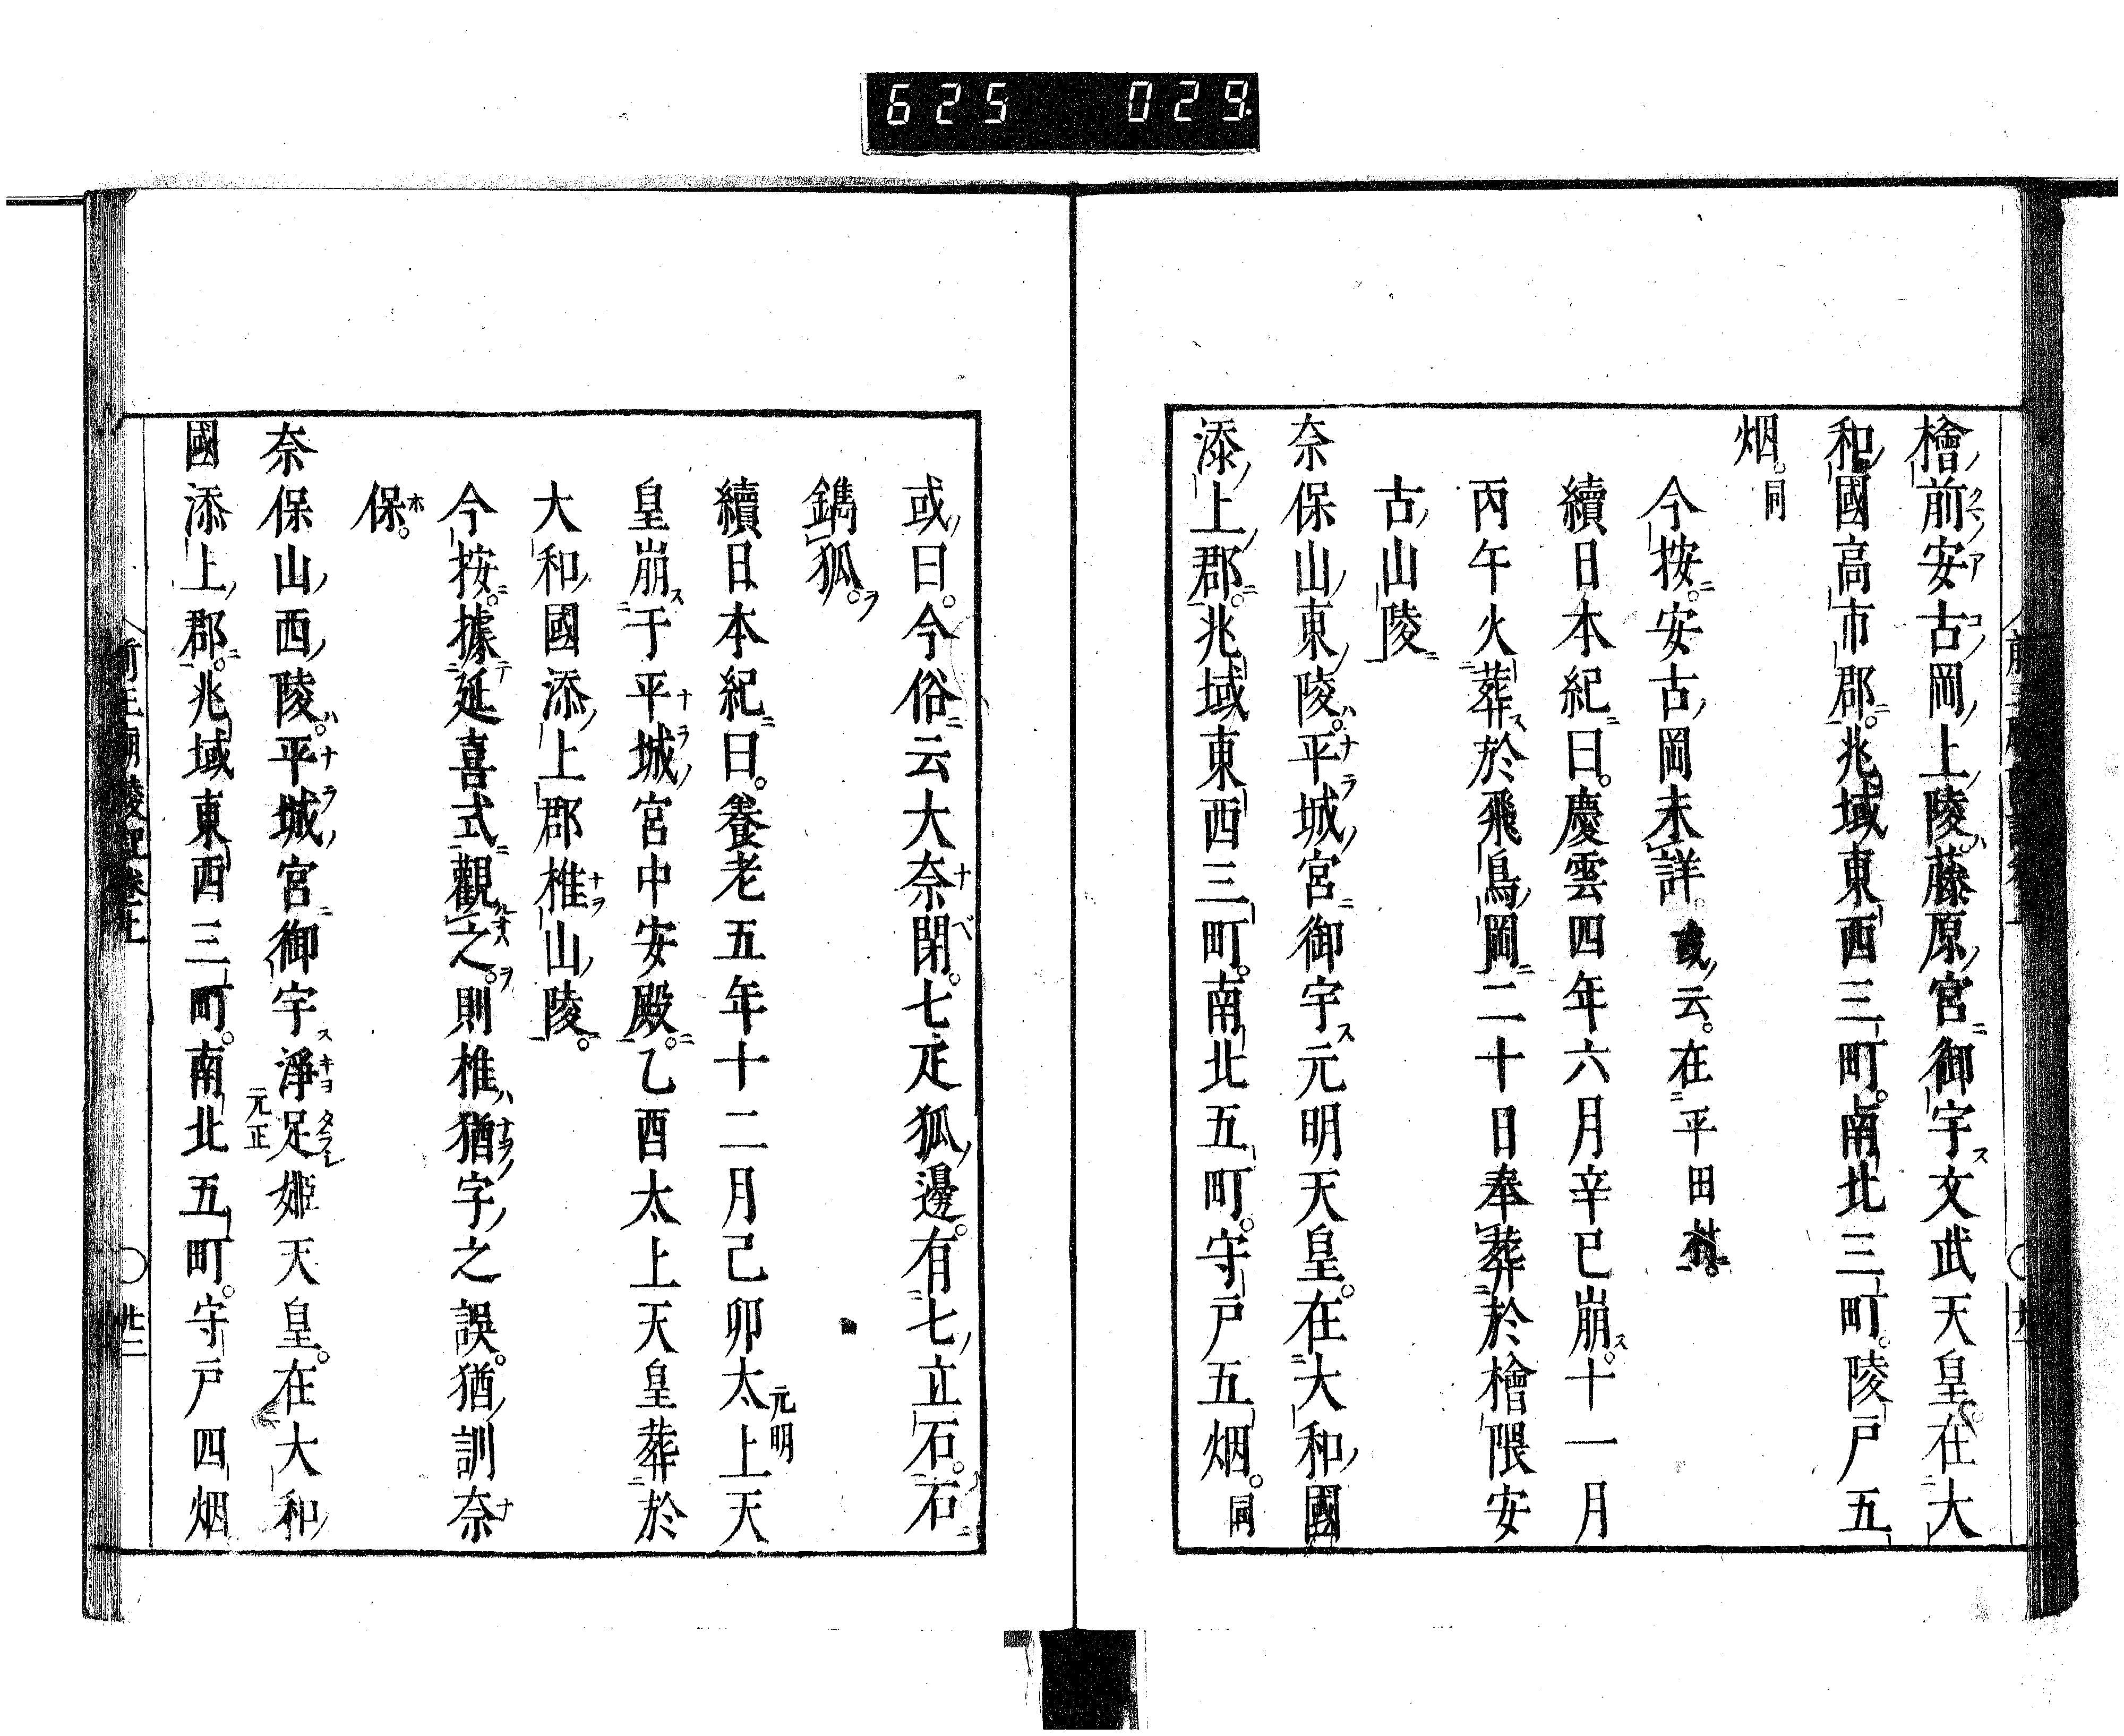 625 029
檜前安古岡上陵藤原宮御宇文武天皇在大
和國高市郡兆域東西三町南北三町陵戸五
烟同
今按安古岡未詳或云在平田村
續日本紀曰慶雲四年六月辛巳崩十一月
丙午火葬於飛鳥岡二十日奉葬於檜隈安
古山陵
奈保山東陵平城宮御宇元明天皇在大和國
添上郡兆域東西三町南北五町守戸五烟同
或曰今俗云大奈閇七疋狐邊有七立石石
鐫狐
續日本紀曰養老五年十二月己卯太上天元明
皇崩于平城宮中安殿乙酉太上天皇葬於
大和國添上郡椎山陵
今按據延喜式觀之則椎猶字之誤猶訓奈
保
奈保山西陵平城宮御宇淨足姫天皇元正在大和
國添上郡兆域東西三町南北五町守戸四烟
前王廟陵記卷上 卅二